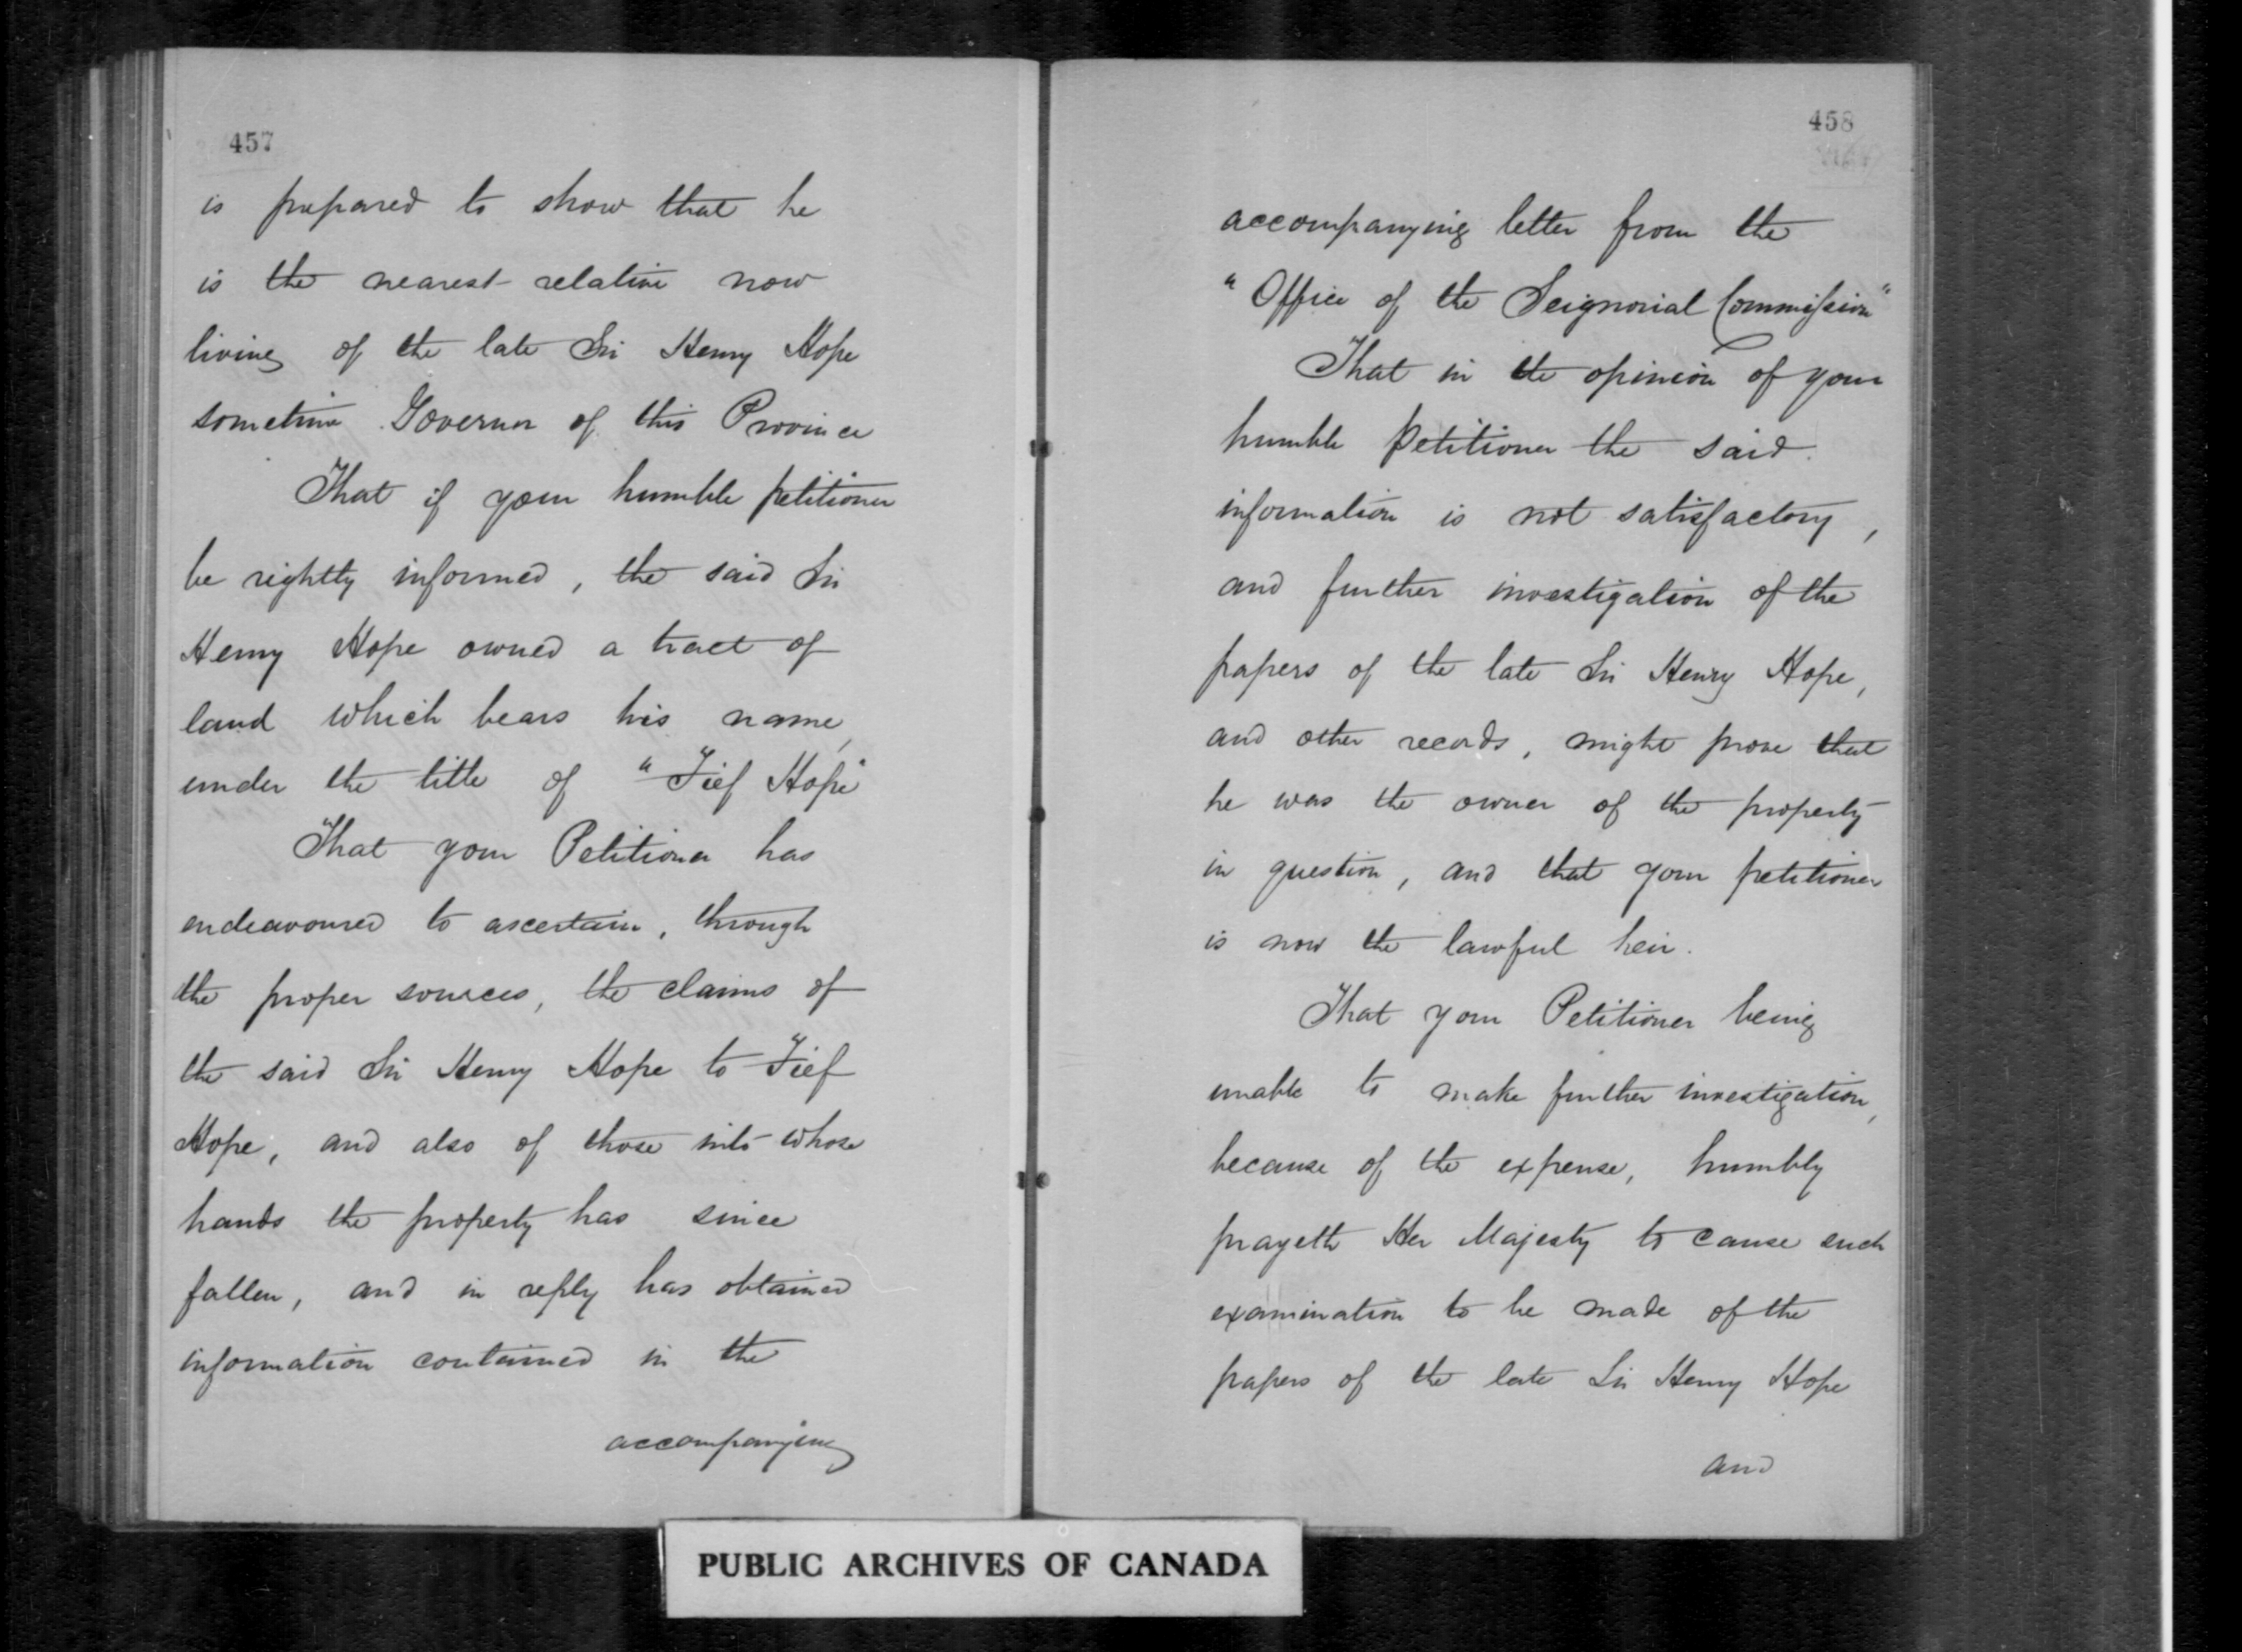 457
is prepared to show that he
is the nearest relative now
living of the late Sir Henry Hope
sometime Governor of this Province
That if your humble petitioner
be rightly informed, the said Sir
Henry Hope owned a tract of
land which bears his name,
under the title of "Fief Hope"
That your Petitioner has
endeavoured to ascertain, through
the proper sources, the claims of
the said Sir Henry Hope to Fief
Hope, and also of those into whose
hands the property has since
fallen, and in reply has obtained
information contained in the
accompanying
458
accompanying letter from the
"Office of the Seignorial Commission"
That in the opinion of your
humble Petitioner the said
information is not satisfactory,
and further investigation of the
papers of the late Sir Henry Hope,
and other records, might prove that
he was the owner of the property
in question, and that your petitioner
is now the lawful heir.
That your Petitioner being
unable to make further investigation,
because of the expense, humbly
prayeth Her Majesty to cause such
examination to be made of the
papers of the late Sir Henry Hope
and
PUBLIC ARCHIVES OF CANADA